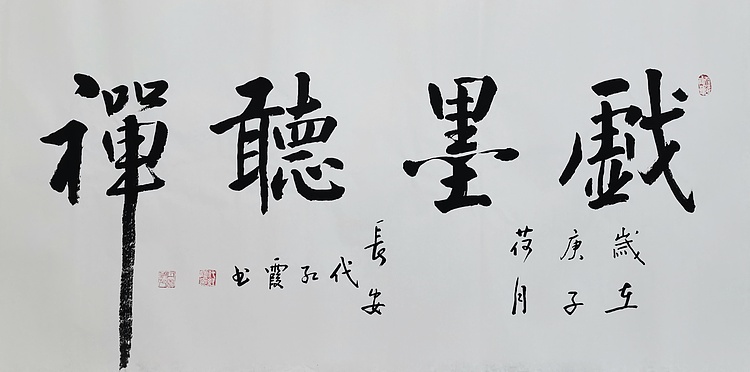 戲墨聽禪
歲在
庚子
荷月
長安
代紅霞書